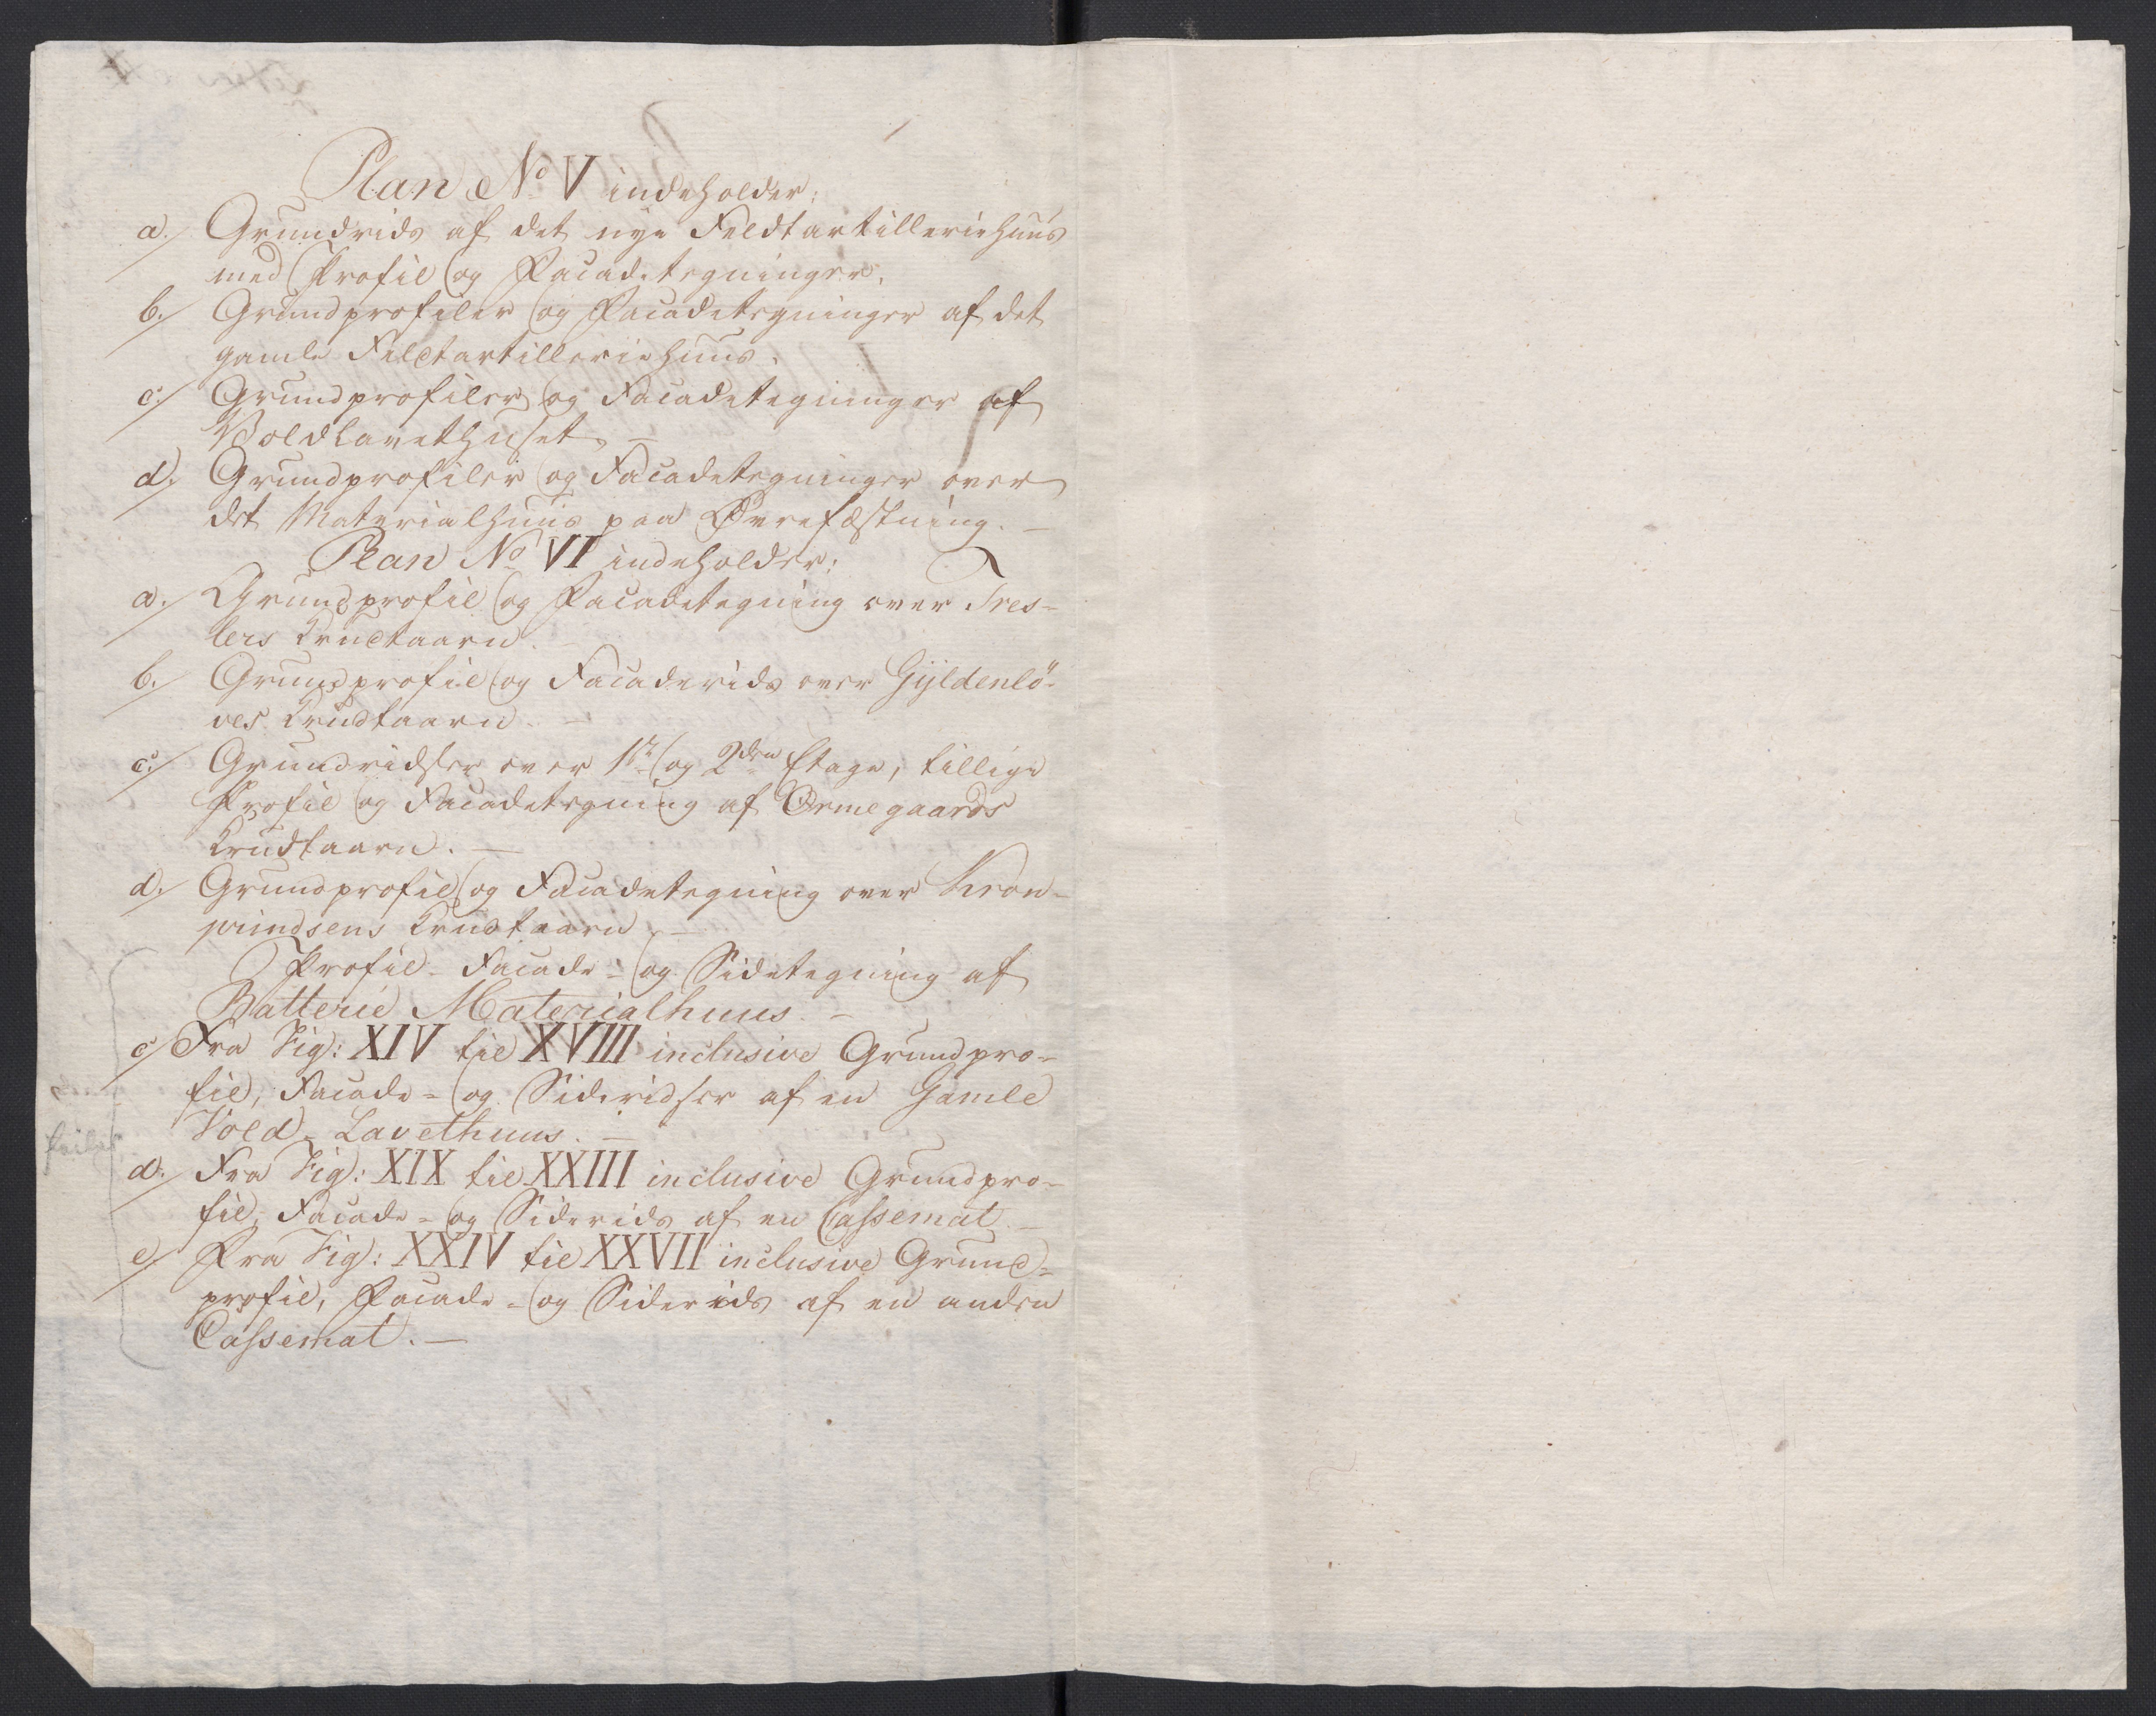 Plan No V indeholder:
a./ Grundrids af det nye Feldtartilleriehuus
med Profil og Facadetegninger.
b./ Grundprofiler og Facadetegninger af det
gamle Feldtartilleriehuus.
c./ Grundprofiler og Facadetegninger af
Voldlavethuset. —
d./ Grundprofiler og Facadetegninger over
det Materialhuus paa Øvrefæstning. —
Plan No VI indeholder:
a./ Grundprofil og Facadetegning over Tres-
lers Krudtaarn.
b./ Grundprofil og Facaderids over Gÿldenlö-
ves Krudtaarn. —
c./ Grundridser over 1te og 2den Etage, tillige
Profil og Facadetegning af Ormegaards
Krudtaarn. —
d./ Grundprofil og Facadetegning over Kron-
prindsens Krudtaarn. —
Profil- Facade- og Sidetegning af
Batterie Materialhuus. —
c/ Fra Fig: XIV til XVIII inclusive Grundpro-
fil, Facade- og Sideridser af en Gamle
Vold- Lavethuus. —
d./ Fra Fig: XIX til XXIII inclusive Grundpro-
fil, Facade- og Siderids af en Cassemat. —
e/ Fra Fig: XXIV til XXVII inclusive Grund-
profil, Facade- og Siderids af en anden
Cassemat. —